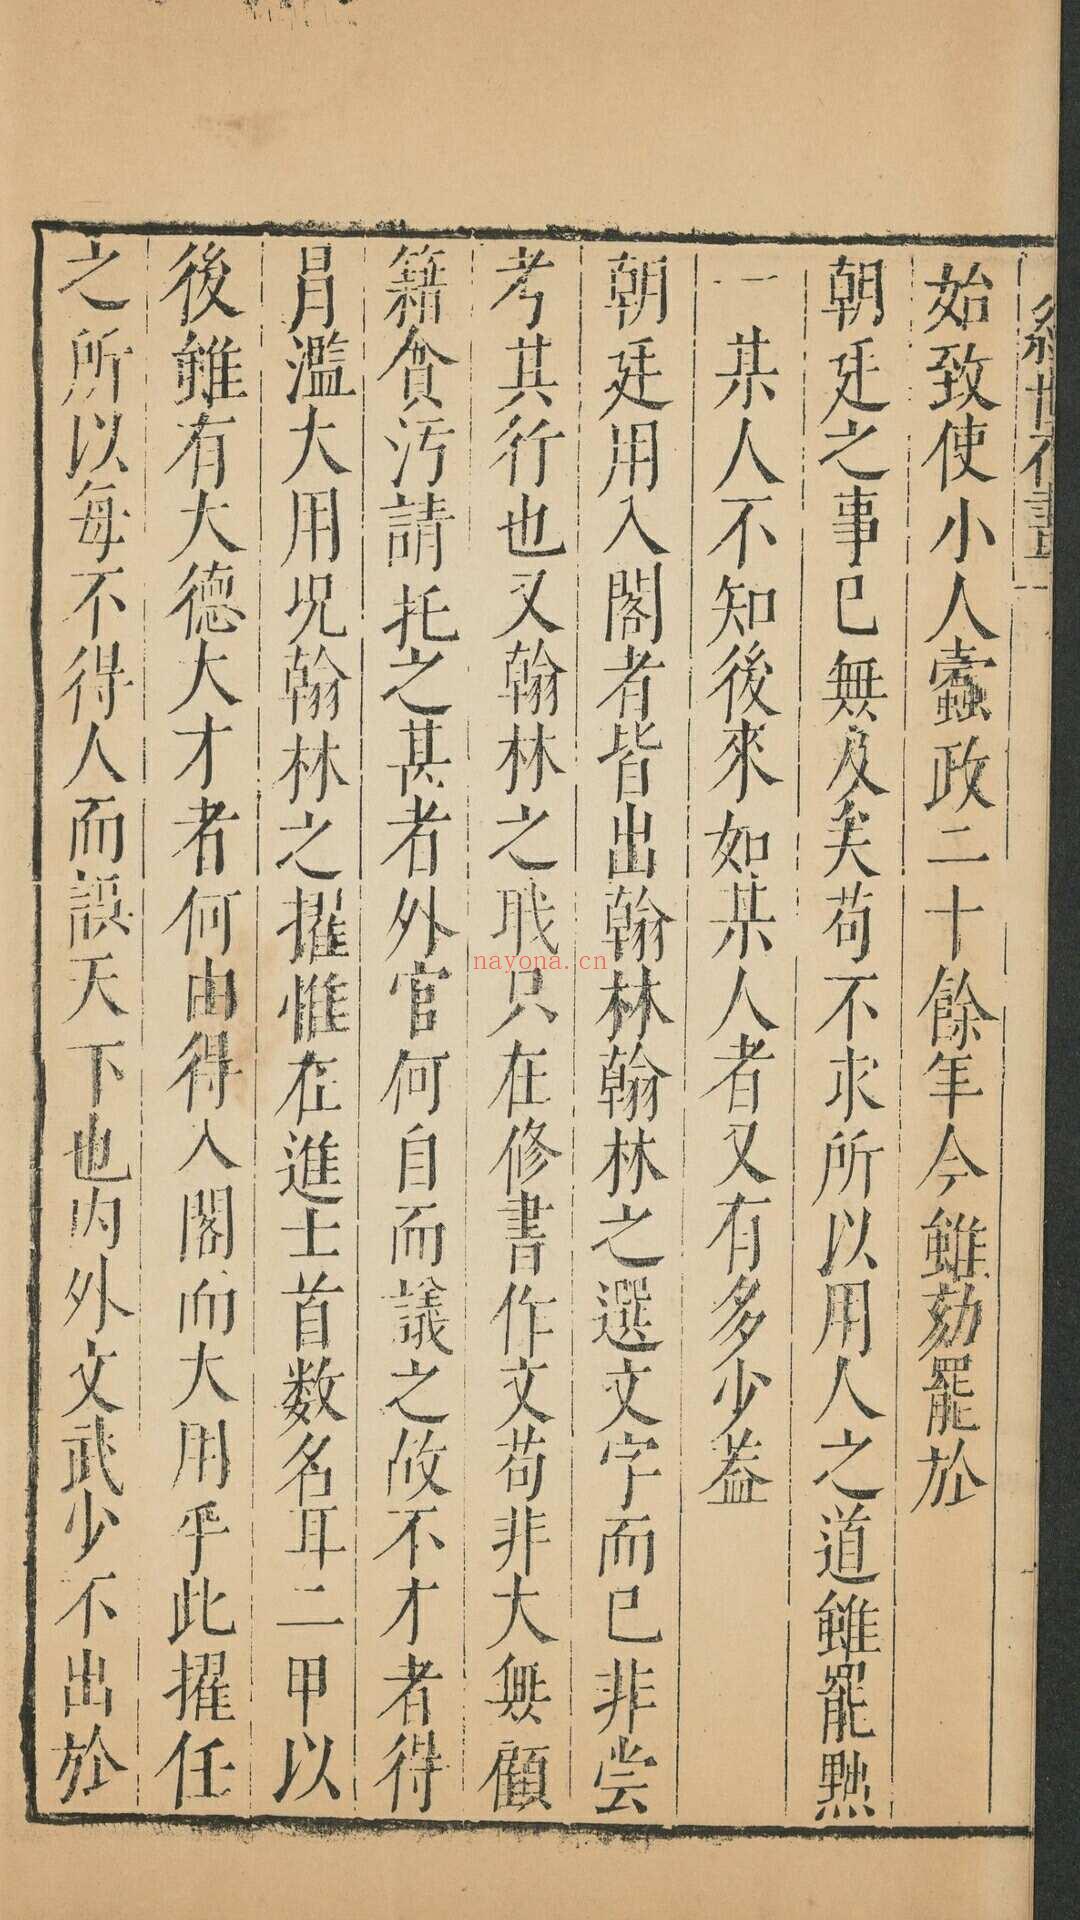 始致使小人蠹政二十餘年今雖劾罷於
朝廷之事已無及矣苟不求所以用人之道雖罷黜
一某人不知後來如某人者又有多少葢
朝廷用入閣者皆出翰林翰林之選文字而已非尝
考其行也又翰林之職只在修書作文苟非大無顧
籍貪污請托之甚者外官何自而議之故不才者得
冐濫大用况翰林之擢惟在進士首数名耳二甲以
後雖有大德大才者何由得入閣而大用乎此擢任
之所以每不得人而誤天下也内外文武少不出於
nayona.cn